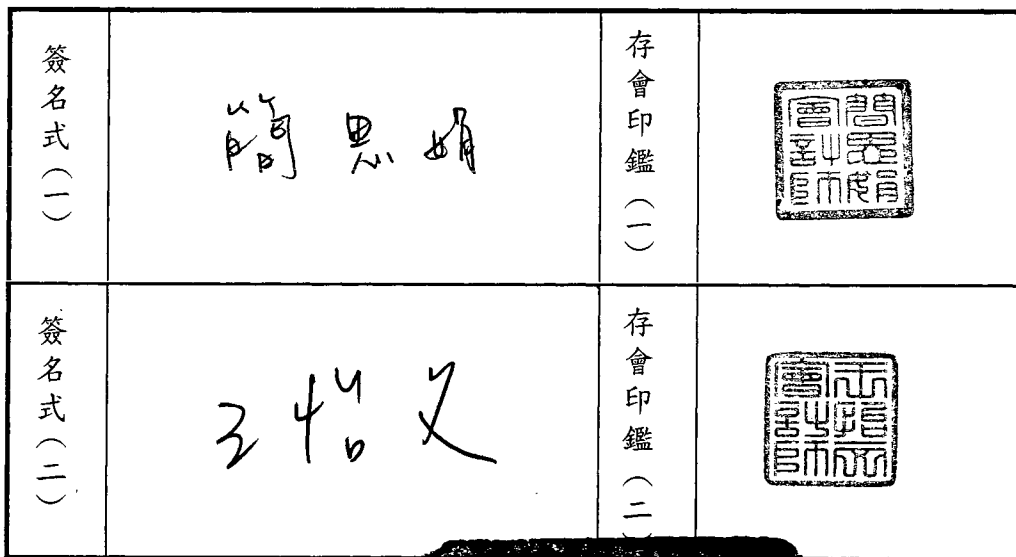 簽名式（一）
簡思娟
存會印鑑（一）
簡思娟
會計師
簽名式（二）
王怡文
存會印鑑（二）
王怡文
會計師